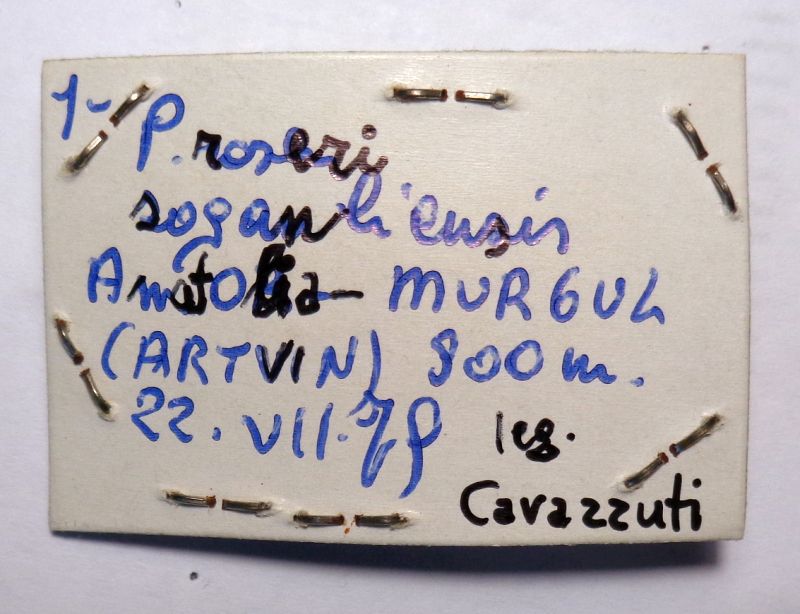 1- P. roseri
soganliensis
Anatolia - MURGUL
(ARTVIN) 900 m.
22. VII. 79 leg.
Cavazzuti